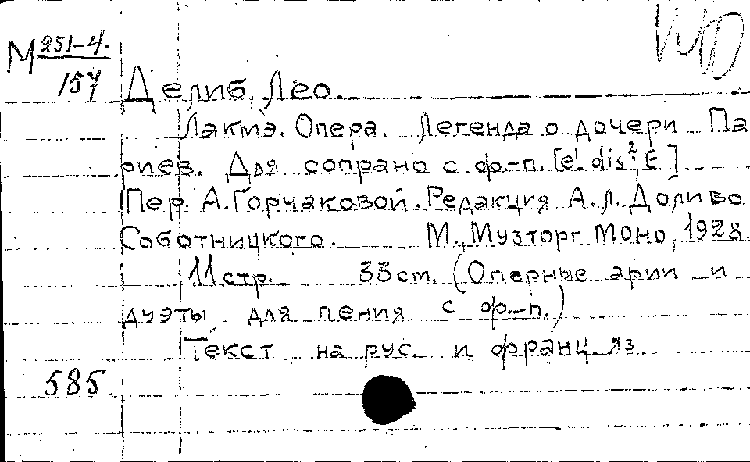 М 251-4.
157
Делиб, Лео.
Лакмэ. Опера. Легенда о дочери Па
риев. Для сопрано с ф-п. [e'. dis²; E]
Пер. А. Горчаковой. Редакция А.Л. Доливо
Соботницкого. М., Музторг МОНО, 1928.
11 стр. 33 cm. (Оперные арии и
дуэты для пения с ф-п.)
Текст на рус. и франц. яз.
585